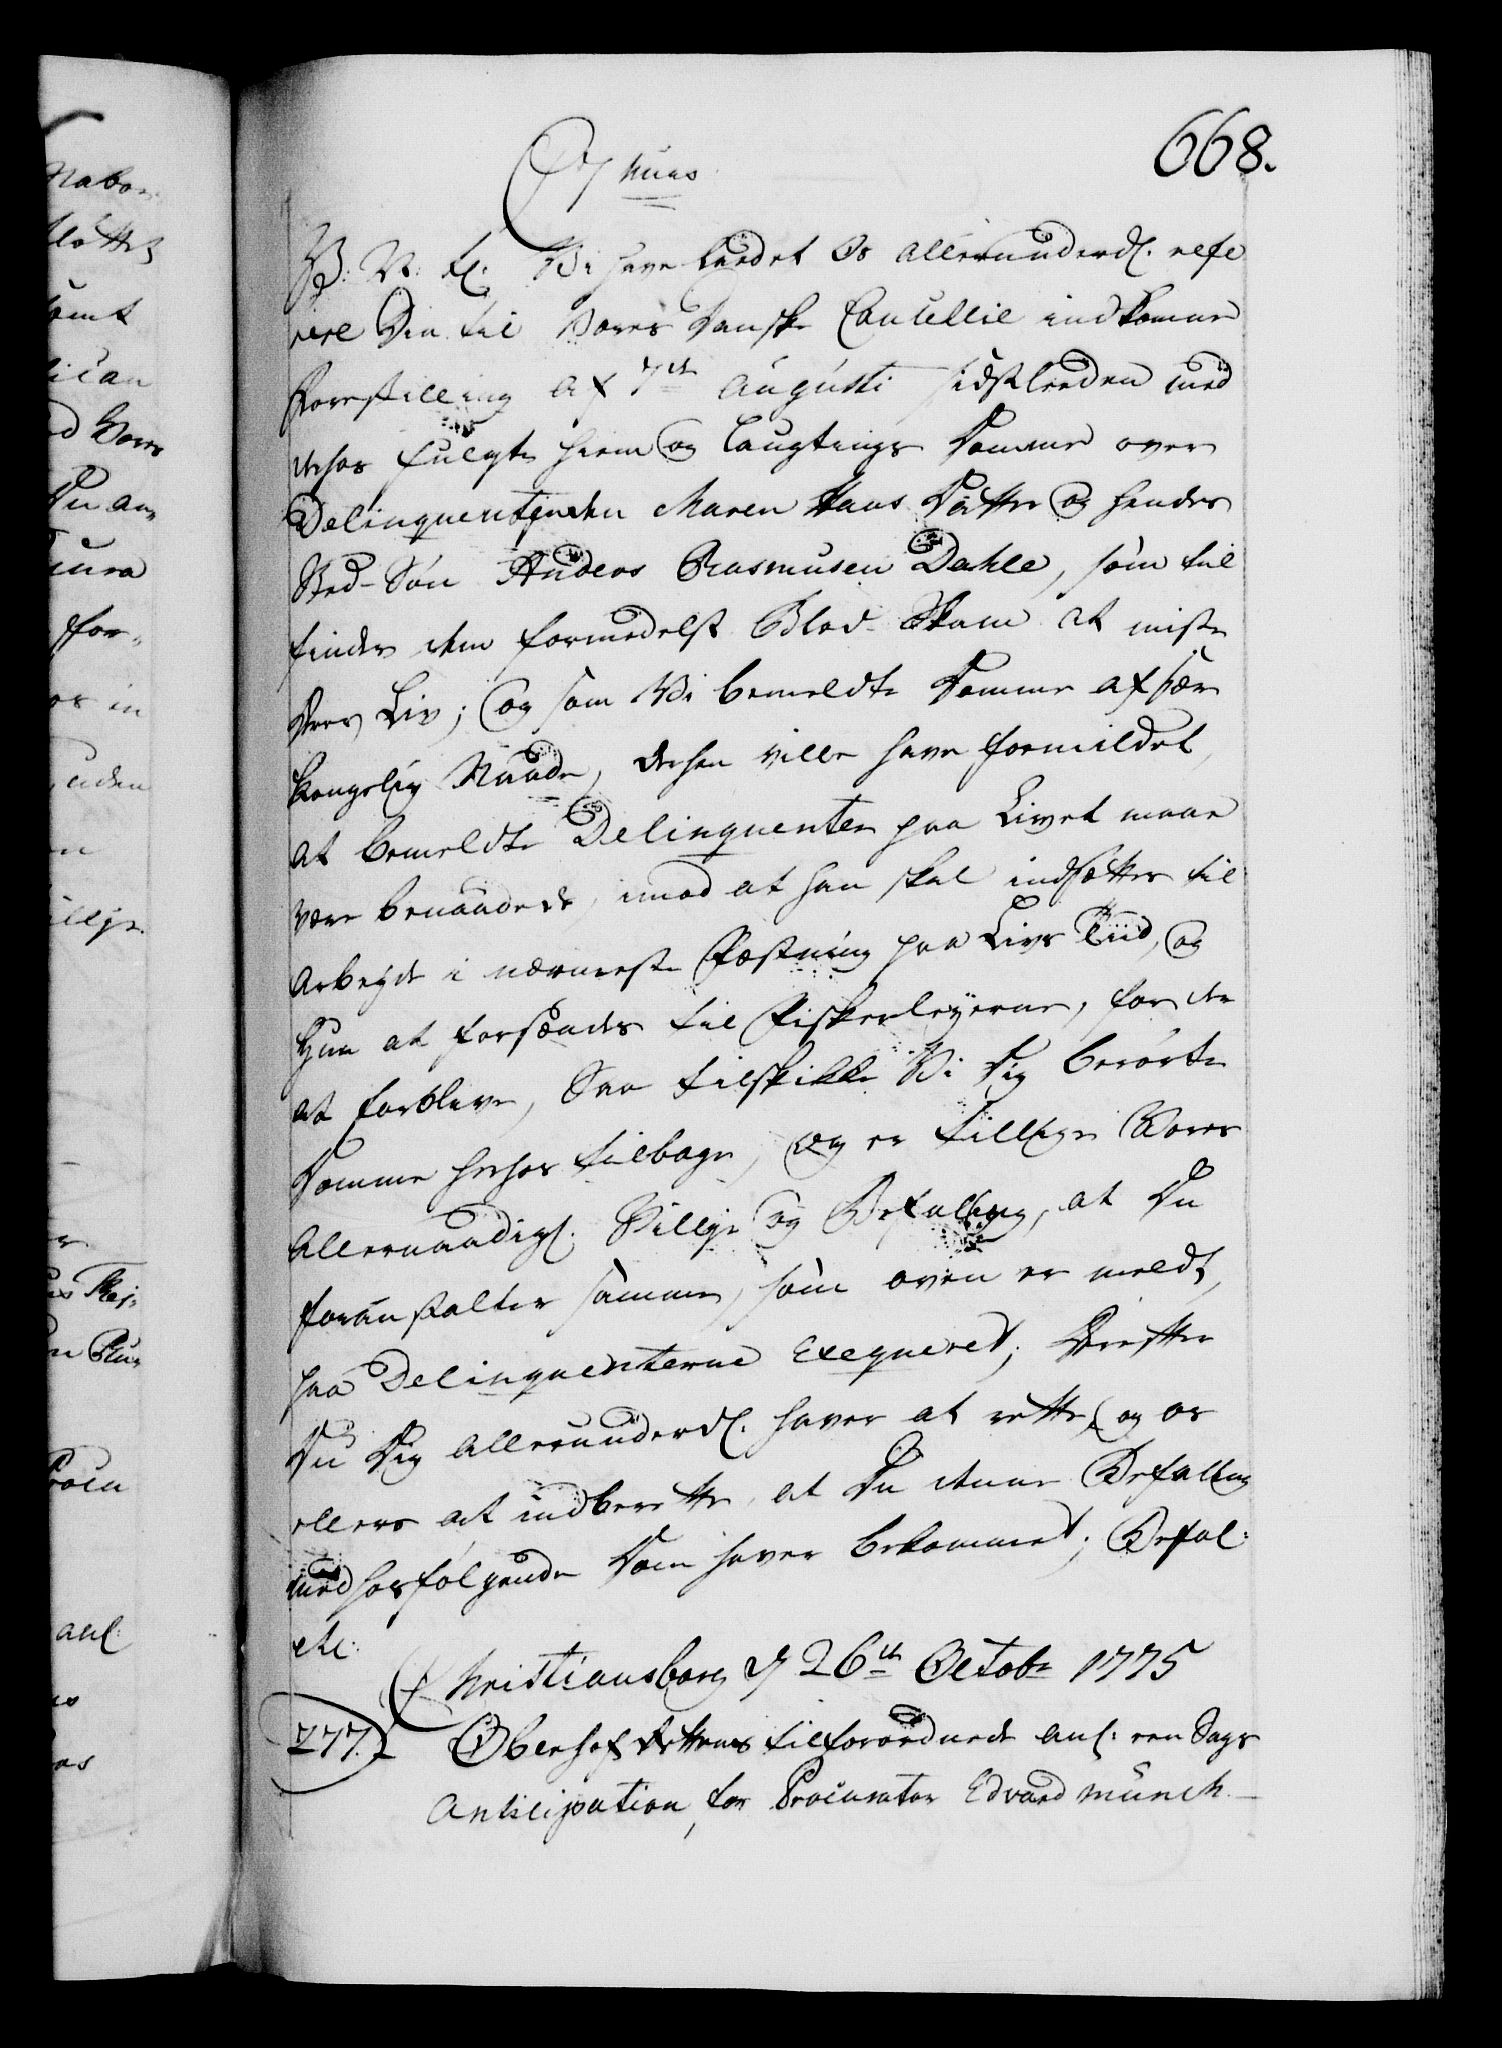 668.
C 7 huus
B: V: tl: Vi have ladet Os allerunderd: refe
rere Din til Vores Danske Cancellie indkomne
Forestilling af 7de Augusti sidstleeden med
derhos fulgte hiem og Laugtings Domme over
Delinquentinden Maren Haas Dotter og hendes
Sted-Søn Anders Rasmusen Dahle, som til
findes dem formedelst Blod-Skam at miste
deres Liv; og som Vi bemeldte Domme af sær
kongelig Naade, derhen ville have formildet,
at bemeldte Delinquenter paa Livet maae
være benaadede, imod at han skal indsættes til
Arbeyde i nærmeste Fæstning paa Livs Tiid, og
hun at forsændes til Fiskerleyerne, for der
at forblive, Saa tilskikke Vi Dig berørte
Domme herhos tilbage, og er tillige Vores
Allernaadigst. Villje og Befaling, at Du
foranstalter samme, som oven er meldt,
paa Delinquenterne Exeqveret; Derefter
Du Dig allerunderd: haver at rette, og os
ellers at indberette, at Du denne Befalling
med hosfølgende Dom haver bekommet; Befal:
etc:
Christiansborg d 26de Octobr 1775
277. Oberhof Rettens tilforordnede anl: een Sags
Anticipation, for Procurator Edvard Münch.